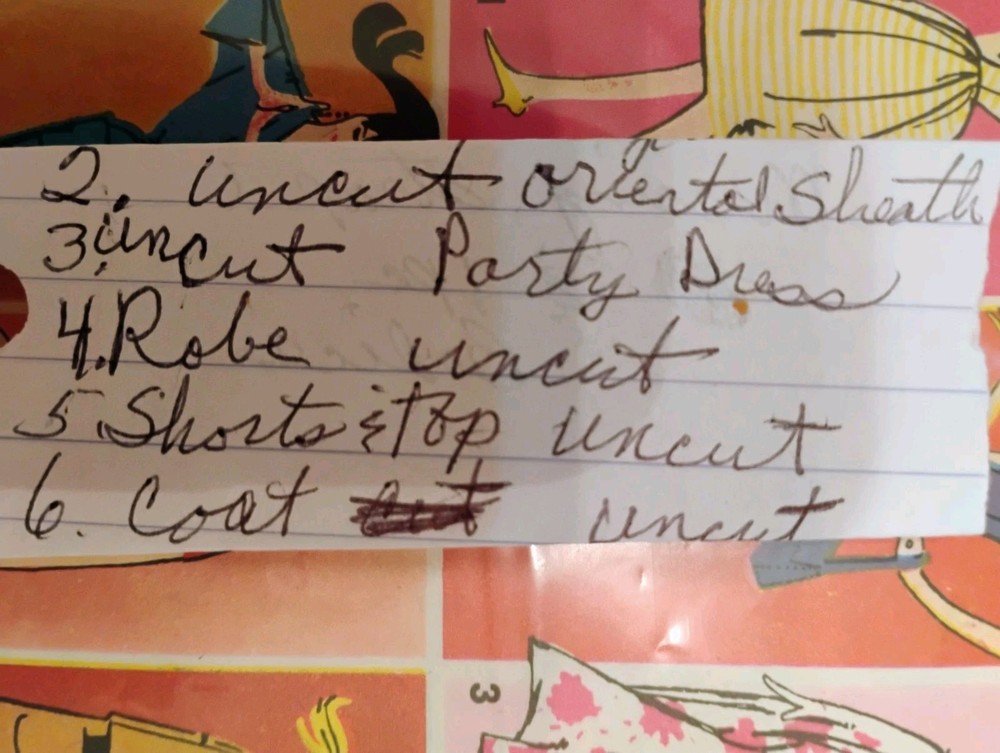 2. uncut oriental Sheath
3. uncut Party Dress
4. Robe uncut
5. Shorts & top uncut
6. Coat cut uncut
3